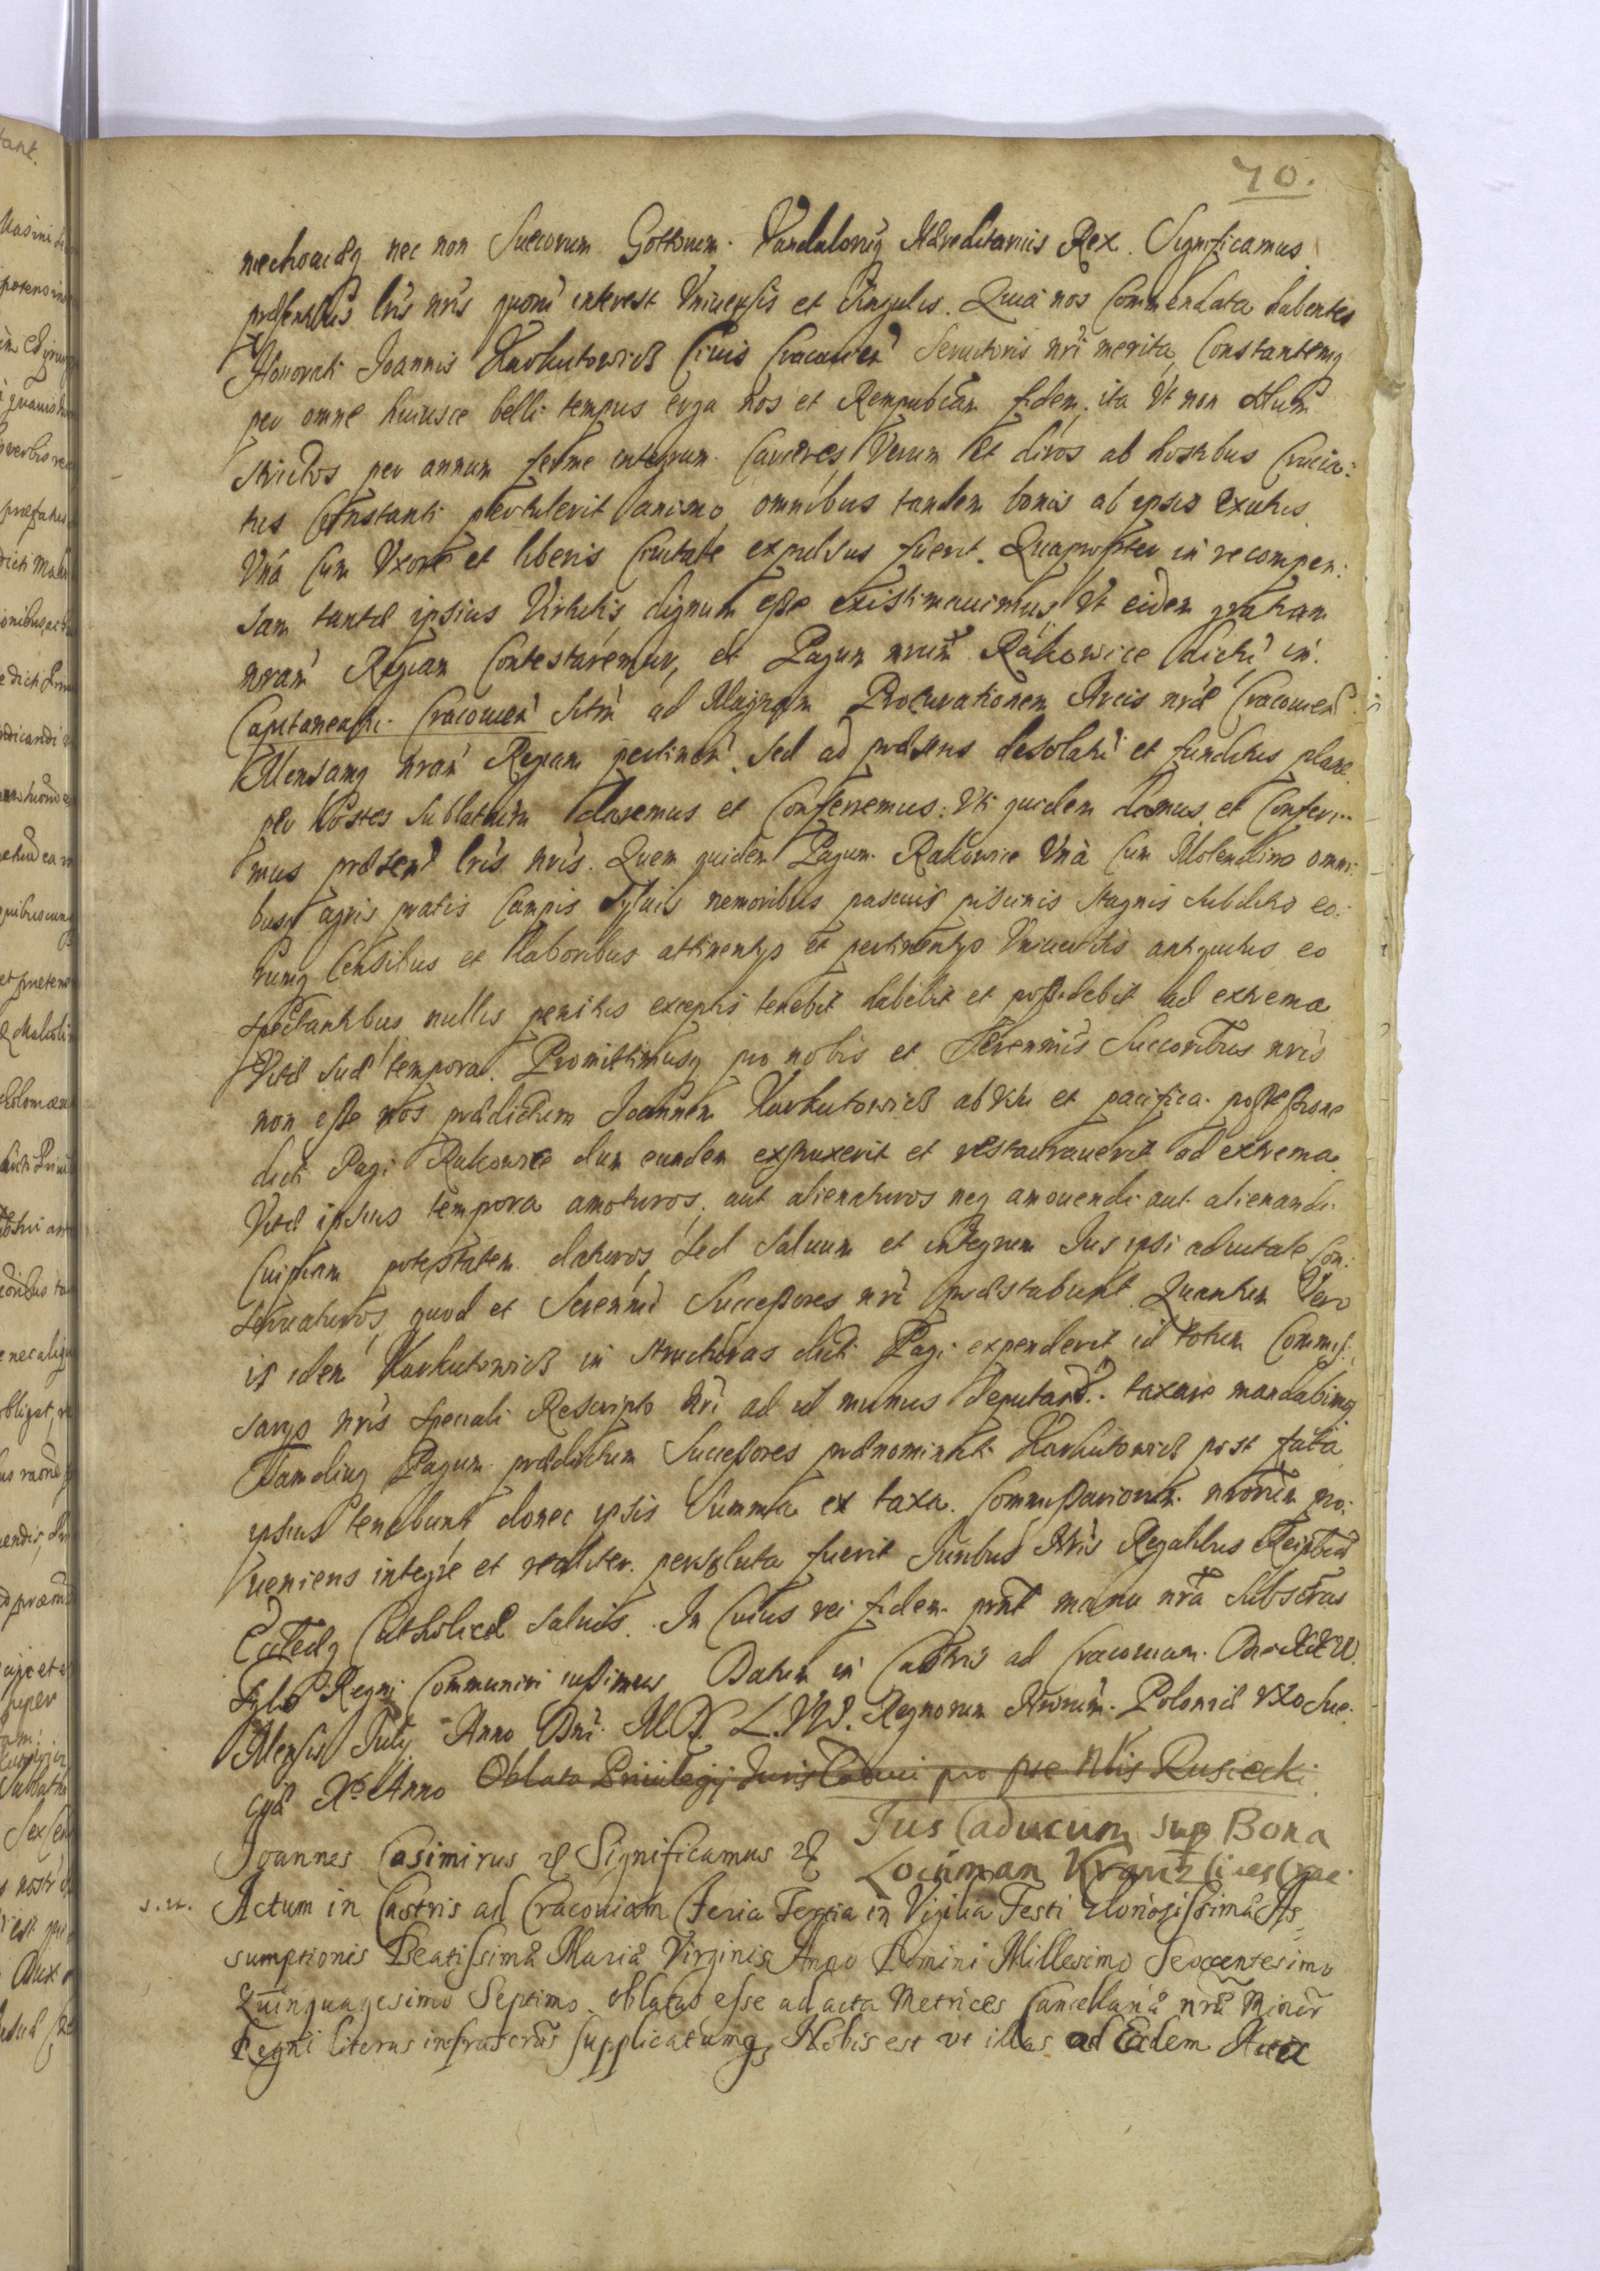 70.
niechoviæq nec non Suecorum Gottorum Vandalorumq Hæreditarius Rex. Significamus
præsentibus lris nris quorũ interest Vniuersis et Singulis. Quia nos Commendata habentes
Honorati Joannis Karkutowicz Ciuis Cracouien Seruitoris nri merita, Constantemq
per omne huiusce belli tempus erga nos et Rempublicam fidem, ita Vt non solum
strictos per annum ferme integrum Carceres Verum et diros ab hostibus Crucia:
tus Constanti pertulerit animo, omnibus tandem bonis ab ipsis exutus
Vná Cum Vxore et liberis Ciuitate expulsus fuerit. Quapropter in recompen:
sam tantæ ipsius Virtutis dignum esse existimauimus Vt eidem gratiam
nram Regiam Contestaremur, et Pagum nrum Rakowice dictũ in
Capitaneatu Cracouien Sitũ ad Magnam Procurationem Arcis nræ Cracouien
Mensamq nram Regiam pertinen. Sed ad præsens desolatũ et funditus plane
per Hostes Sublatum daremus et Conferremus: Vti quidem damus et Conferi:
mus præsen lris nris. Quem quidem Pagum Rakowice Vná Cum Molendino omni:
busq agris pratis Campis Syluis nemoribus pascuis piscinis stagnis subditis eo:
rumq Censibus et laboribus attinentijs et pertinentijs Vniuersis antiquitus eo
spectantibus nullis penitus exceptis tenebit habebit et possidebit ad extrema
Vitæ suæ tempora. Promittimusq pro nobis et Serenmis Successoribus nris
non esse nos prædictum Joannem Karkutowicz ab Vsu et pacifica possessione
dicti Pagi Rakowice dum eundem extruxerit et restaurauerit ad extrema
Vitæ ipsius tempora amoturos, aut alienaturos neq amouendi aut alienandi
Cuipiam potestatem daturos, sed saluum et integrum Jus ipsi aduitale Con:
seruaturos, quod et Serenmi Successores nri præstabunt. Quantum Vero
is idem Karkutowicz in structuras dicti Pagi expenderit id totum Commis:
sarijs nris speciali Rescripto nri ad id munus deputand. taxare mandabimus
Tamdiuq Pagum prædictum Successores prænominati Karkutowicz post fata
ipsius tenebunt donec ipsis Summa ex taxa Commissariorum nrorum pro:
ueniens integre et realiter persoluta fuerit Juribus Nris Regalibus Reipbcæ
Ecclæq Catholicæ saluis. In Cuius rei fidem prnt manu nra Subscras
Sigillo Regni Communiri iussimus. Datum in Castris ad Cracouiam Die
Mensis Julij Anno Dni M.D. L.VII. Regnorum Nrorum Poloniæ IXo Sue:
ciæ Xo Anno Oblata Priuilegij Juris Caduci pro pse Nlis Rusiecki
Jus Caducum sup Bona
Joannes Casimirus &c Significamus &c Locinman Krantz Ciues Crac.
s. n. Actum in Castris ad Cracouiam Feria Tertia in Vigilia Festi Gloriosissimæ As
sumptionis Beatissimæ Mariæ Virginis Anno Domini Millesimo Sexcentesimo
Quinquagesimo Septimo. Oblatas esse ad acta Metrices Cancellariæ nræ Minor
Regni literas infrascras supplicatumq Nobis est vt illas ad Eadem Acta